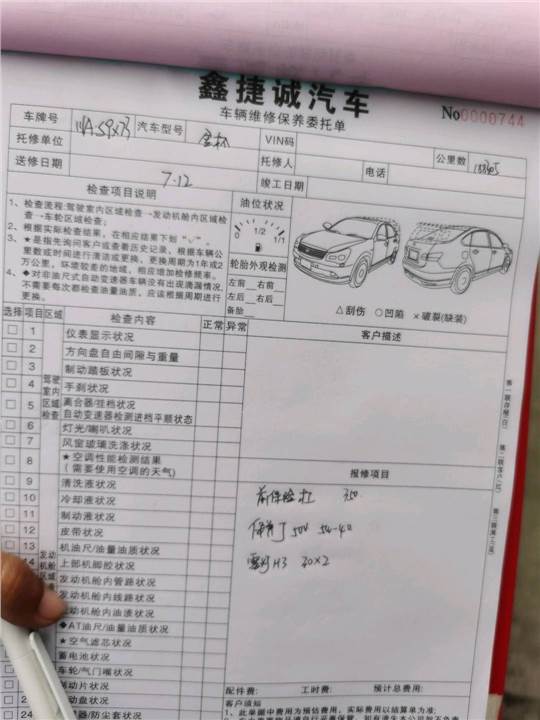 鑫捷诚汽车
车辆维修保养委托单
No0000744
车牌号 汽车型号 VIN码 公里数
托修单位 托修人 电话
送修日期 7.12 竣工日期
检查项目说明
1、检查流程:驾驶室内区域检查→发动机舱内区域检查→车轮区域检查;
2、根据实际检查结果,在相应结果下划“√”。
3、★是指先询问客户或查看历史记录,根据车辆公里数或时间进行清洁或更换,更换周期为1年或2万公里,环境较差的地域,相应增加检修频率。
4、◆对非油尺式自动变速器车辆没有出现滴漏情况,不需要每次都检查油量油质,应该根据周期进行更换。
油位状况
0 1/2 1/1
轮胎外观检测
左前 右前
左后 右后
备胎
△刮伤 ○凹陷 ×破裂(缺装)
选择 项目 区域 检查内容 正常 异常
客户描述
驾驶室内区域检查
1 仪表显示状况
2 方向盘自由间隙与重量
3 制动踏板状况
4 手刹状况
5 离合器/挂档状况
自动变速器检测进档平顺状态
6 灯光/喇叭状况
7 风窗玻璃洗涤状况
8 ★空调性能检测结果
(需要使用空调的天气)
9 清洗液状况
10 冷却液状况
11 制动液状况
12 皮带状况
13 机油尺/油量油质状况
14 上部机脚胶状况
发动机舱内管路状况
发动机舱内线路状况
发动机舱内油渍状况
◆AT油尺/油量油质状况
★空气滤芯状况
蓄电池状况
车轮/气门嘴状况
制动片状况
动盘状况
24 器/防尘套状况
报修项目
前保险杠 350
雾灯H3 30×2
配件费: 工时费: 预计总费用:
客户须知
1、此单据中费用为预估费用,实际费用以结算单为准;